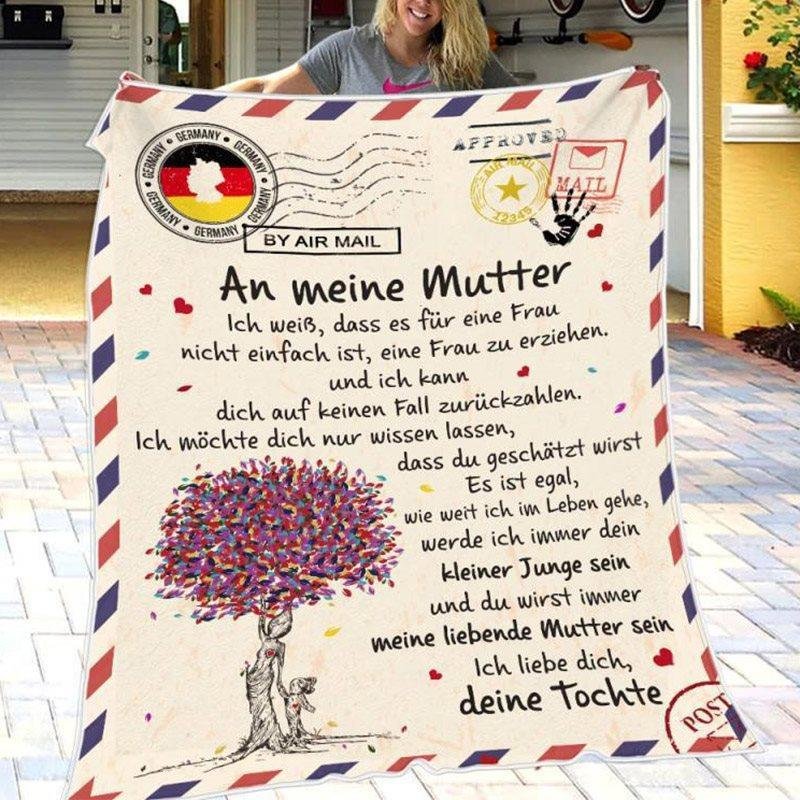 GERMANY • GERMANY • GERMANY • GERMANY • GERMANY • GERMANY
BY AIR MAIL
APPROVED
AIR MAIL
12345
MAIL
An meine Mutter
Ich weiß, dass es für eine Frau
nicht einfach ist, eine Frau zu erziehen.
und ich kann
dich auf keinen Fall zurückzahlen.
Ich möchte dich nur wissen lassen,
dass du geschätzt wirst
Es ist egal,
wie weit ich im Leben gehe,
werde ich immer dein
kleiner Junge sein
und du wirst immer
meine liebende Mutter sein
Ich liebe dich,
deine Tochte
POST